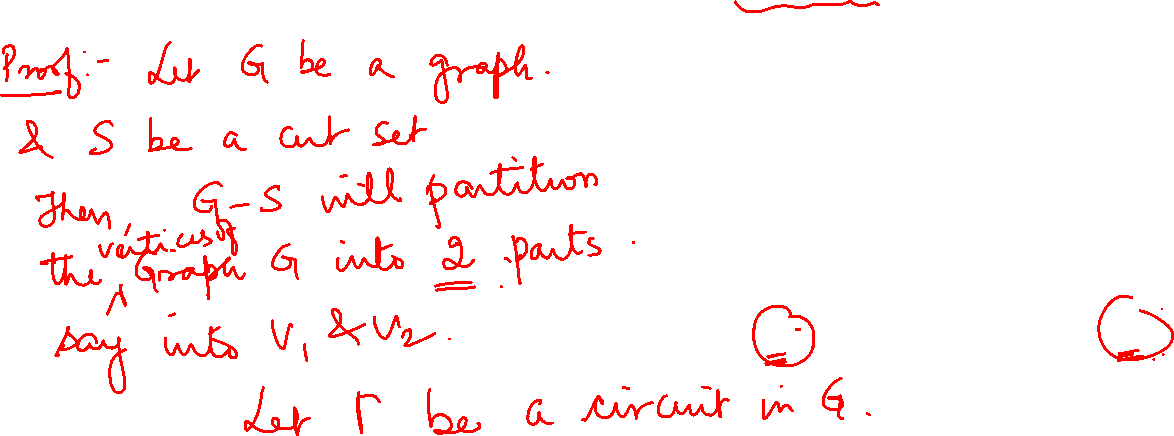 Proof:- Let G be a graph.
& S be a cut set
Then, G-S will partition
the vertices of Graph G into 2 parts.
say into V₁ & V₂.
Let Γ be a circuit in G.